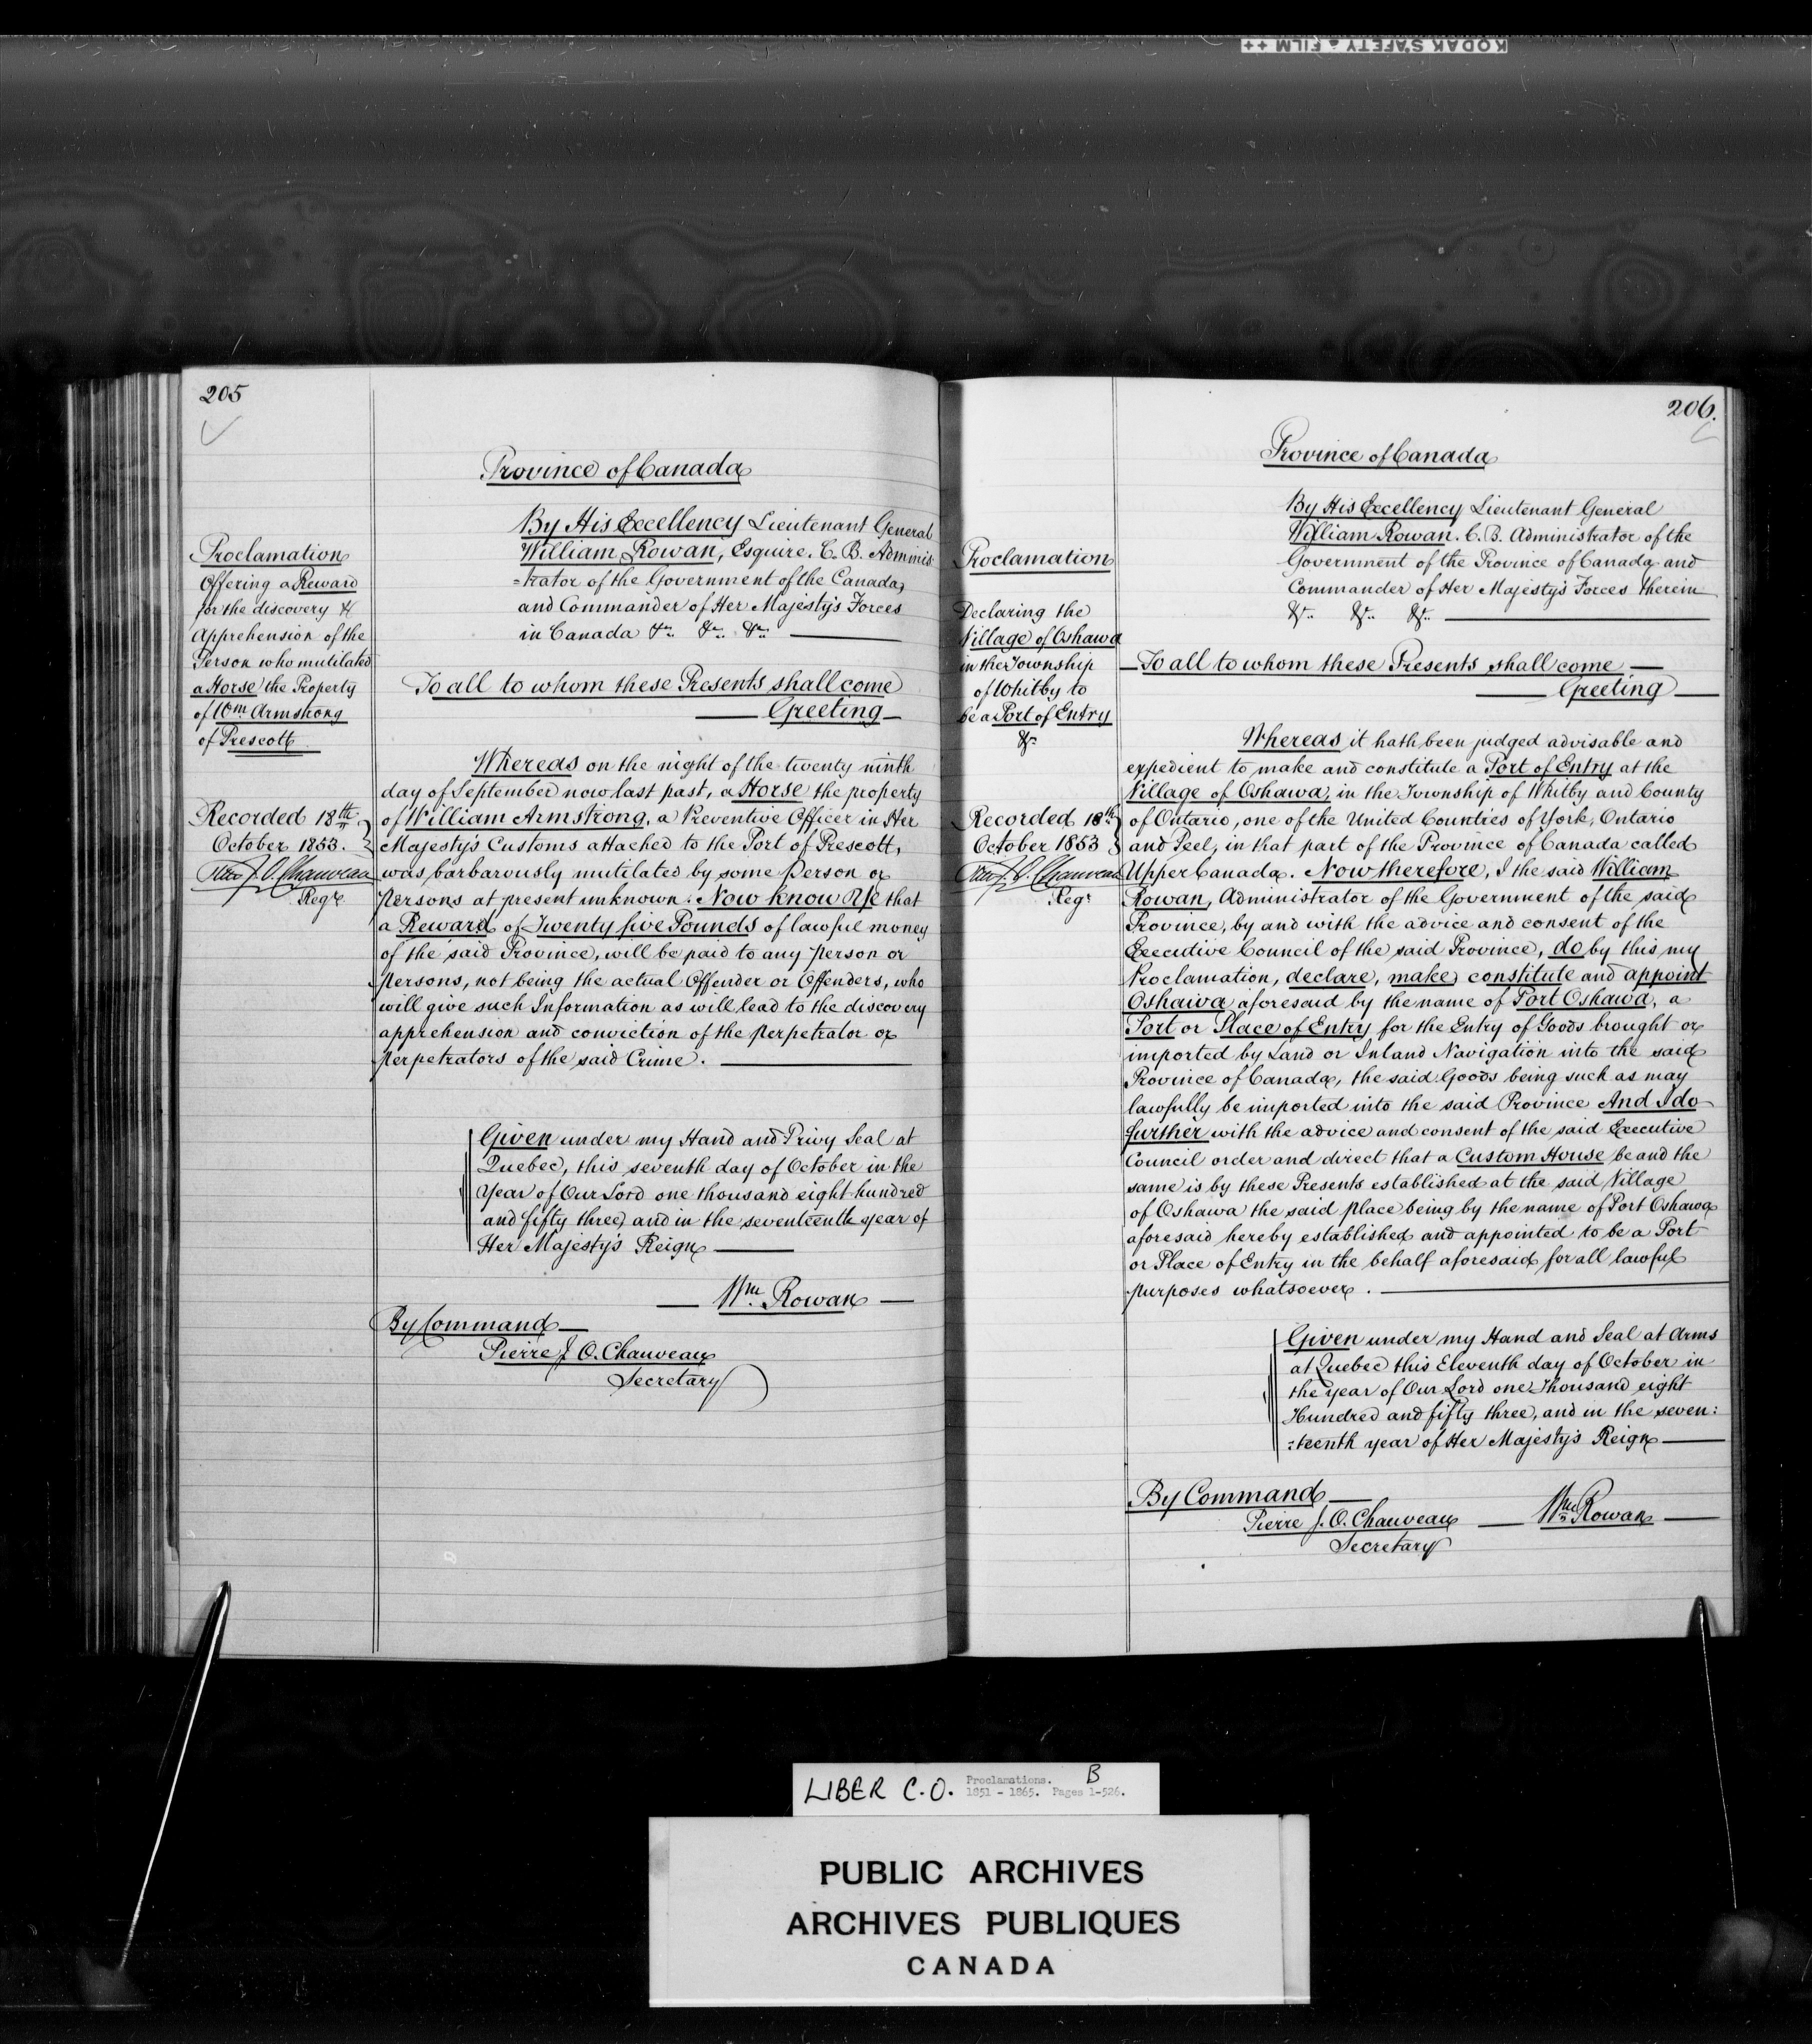 KODAK SAFETY FILM ++
205
Province of Canada
By His Excellency Lieutenant General
William Rowan, Esquire. C. B. Adminis
=trator of the Government of the Canada,
and Commander of Her Majesty's Forces
in Canada &c. &c. &c.
To all to whom these Presents shall come
Greeting
Proclamation
Offering a Reward
for the discovery &
Apprehension of the
Person who mutilated
a Horse the Property
of Wm. Armstrong
of Prescott
Recorded 18th
October 1853.
J. O. Chauveau
Regr.
Whereas on the night of the twenty ninth
day of September now last past, a Horse the property
of William Armstrong, a Preventive Officer in Her
Majesty's Customs attached to the Port of Prescott,
was barbarously mutilated by some Person or
Persons at present unknown. Now know Ye that
a Reward of Twenty five Pounds of lawful money
of the said Province, will be paid to any person or
persons, not being the actual Offender or Offenders, who
will give such Information as will lead to the discovery
apprehension and conviction of the perpetrator or
perpetrators of the said Crime.
Given under my Hand and Privy Seal at
Quebec, this seventh day of October in the
Year of Our Lord one thousand eight hundred
and fifty three, and in the seventeenth year of
Her Majesty's Reign
Wm. Rowan
By Command
Pierre J. O. Chauveau
Secretary
206.
Province of Canada
By His Excellency Lieutenant General
William Rowan. C. B. Administrator of the
Government of the Province of Canada and
Commander of Her Majesty's Forces therein
&c. &c. &c.
To all to whom these Presents shall come
Greeting
Proclamation
Declaring the
Village of Oshawa
in the Township
of Whitby to
be a Port of Entry
&c
Recorded 18th
October 1853
J. O. Chauveau
Regr
Whereas it hath been judged advisable and
expedient to make and constitute a Port of Entry at the
Village of Oshawa, in the Township of Whitby and County
of Ontario, one of the United Counties of York, Ontario
and Peel, in that part of the Province of Canada called
Upper Canada. Now therefore, I the said William
Rowan, Administrator of the Government of the said
Province, by and with the advice and consent of the
Executive Council of the said Province, do by this my
Proclamation, declare, make, constitute and appoint
Oshawa aforesaid by the name of Port Oshawa, a
Port or Place of Entry for the Entry of Goods brought or
imported by Land or Inland Navigation into the said
Province of Canada, the said Goods being such as may
lawfully be imported into the said Province And I do
further with the advice and consent of the said Executive
Council order and direct that a Custom House be and the
same is by these Presents established at the said Village
of Oshawa the said place being by the name of Port Oshawa
aforesaid hereby established and appointed to be a Port
or Place of Entry in the behalf aforesaid for all lawful
purposes whatsoever.
Given under my Hand and Seal at Arms
at Quebec this Eleventh day of October in
the year of Our Lord one Thousand eight
Hundred and fifty three, and in the seven:
:teenth year of Her Majesty's Reign
By Command
Pierre J. O. Chauveau
Wm. Rowan
Secretary
LIBER C.O. Proclamations. B
1851 - 1865. Pages 1-526.
PUBLIC ARCHIVES
ARCHIVES PUBLIQUES
CANADA